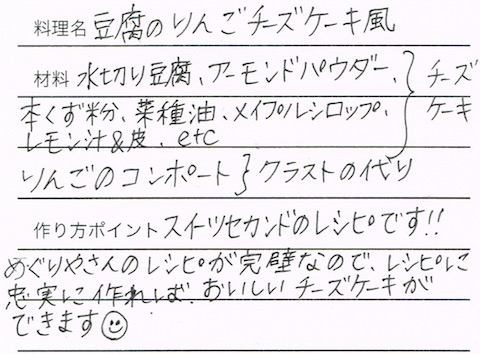 料理名 豆腐のりんごチーズケーキ風
材料 水切り豆腐、アーモンドパウダー、
本くず粉、菜種油、メイプルシロップ、
レモン汁&皮、etc
} チーズケーキ
りんごのコンポート } クラストの代り
作り方ポイント スイーツセカンドのレシピです!!
めぐりやさんのレシピが完璧なので、レシピに
忠実に作れば、おいしいチーズケーキが
できます☺